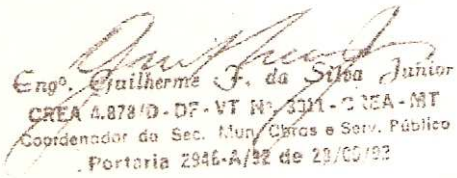 Engº. Guilherme J. da Silva Junior
CREA 4.878/D - DF - VT Nº 3311 - CREA - MT
Coordenador da Sec. Mun. Obras e Serv. Público
Portaria 2946-A/92 de